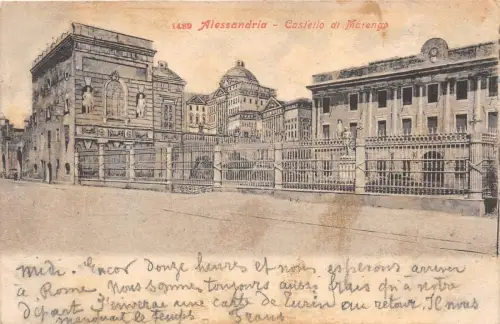 1489 Alessandria - Castello di Marengo
midi. Encor douze heures et nous esperons arriver
à Rome Nous sommes toujours aussi frais qu'à notre
départ J'enverrai une carte de Turin au retour. Il nous
manquait le temps Frans